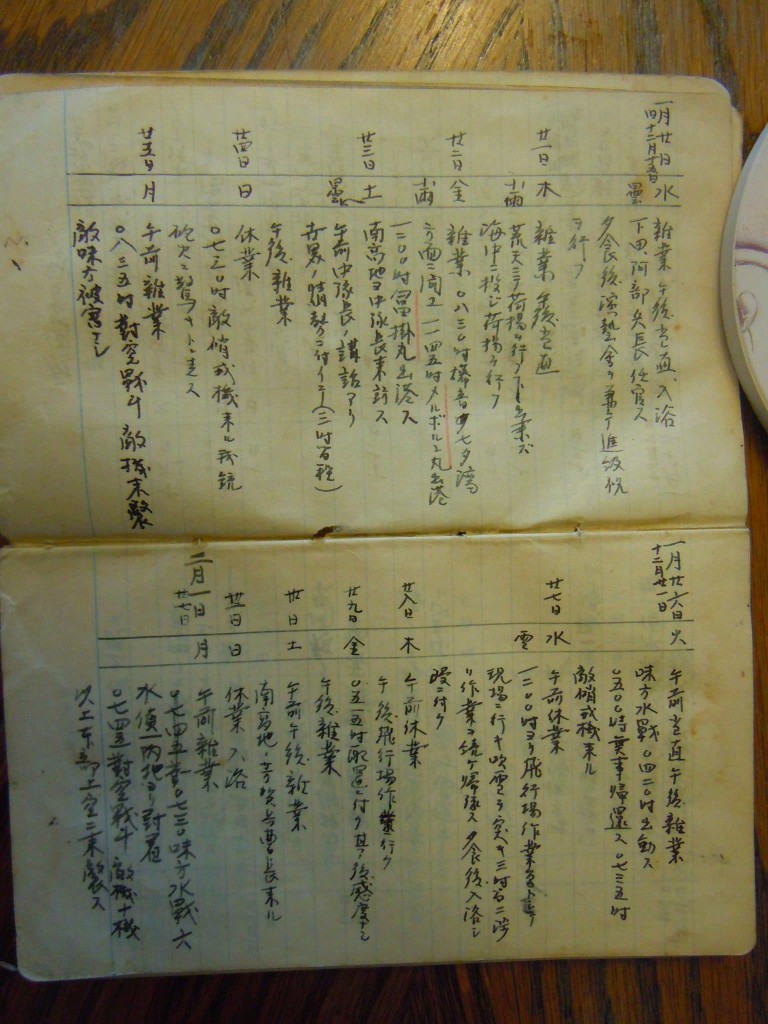 一月廿日 水
旧十二月十五日 曇
雑業 午後当直、入浴
下田、阿部兵長任官ス
夕食後演芸会ヲ兼テ進級祝
ヲ行フ
廿一日 木
小雨
雑業 午後当直
荒天ニテ荷揚ヲ行フ
海中ニ投ジ荷揚ヲ行フ
廿二日 金
小雨
雑業 〇八三〇時 七夕湾
方面ニ向フ 一一四五時メルボルン丸出港
一二〇〇時冨掛丸出港ス
廿三日 土
曇
南高地ヨリ中隊長来訪ス
午前中隊長ノ講話アリ
世界ノ情勢ニ付イテ(二時間程)
午後雑業
廿四日 日
休業
〇七三〇時敵哨戒機来ル 我銃
砲火ニ驚キトン走ス
廿五日 月
午前雑業
〇八三五時対空戦斗 敵機来襲
敵味方被害ナシ
一月廿六日 火
十二月廿一日
午前当直午後雑業
味方水戦〇四二〇時出動ス
〇五〇〇時無事帰還ス 〇七三五時
敵哨戒機来ル
廿七日 水
雪
午前休業
一二〇〇時ヨリ飛行場作業
現場ニ行キ吹雪ヲ突キ三時間ニ渉
リ作業ヲ続ケ帰隊ス 夕食後入浴シ
寝ニ付ク
廿八日 木
午前休業
午後飛行場作業ニ行ク
廿九日 金
〇五一五時配置ニ付ク 其ノ後感度ナシ
午後雑業
卅日 土
午前午後雑業
南高地ヨリ 兵曹長来ル
卅一日 日
休業 入浴
二月一日 月
廿七日
午前雑業
〇七四五 〇七三〇味方水戦六
水偵内地ヨリ到着
〇七四五対空戦斗 敵機十機
以上本部上空ニ来襲ス